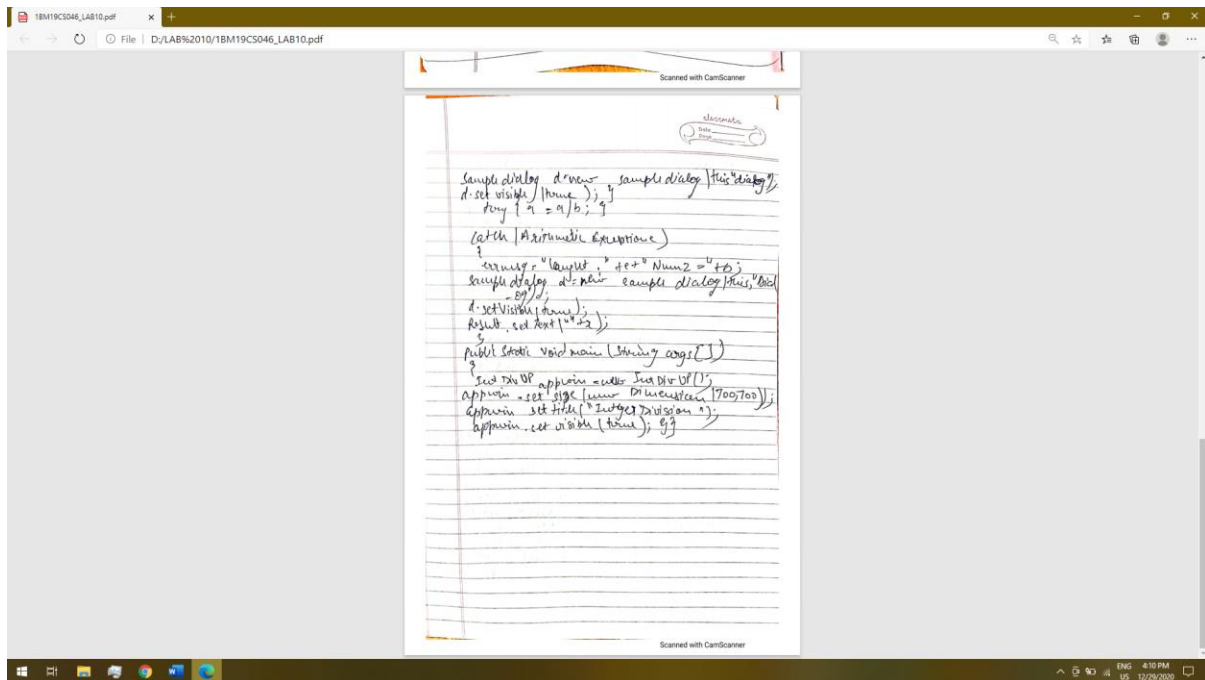 1BM19CS046_LAB10.pdf
File | D:/LAB%2010/1BM19CS046_LAB10.pdf
Scanned with CamScanner
classmate
Date
Page
Sample dialog d=new sample dialog(this"dialog");
d.set visible(true); }
try { a = a/b; }
catch (Arithmetic Exceptione)
{
errmsg="Caught," +e+" Num2 ="+b;
Sample dialog d=new sample dialog(this,"Dial
-og");
d.setVisible(true);
Result.set text(""+a);
}
public Static void main(String args[])
{
Int Div UP appwin = new Int Div UP();
appwin.set size(new Dimension(700,700));
appwin set title("Intger Division");
appwin.set visible(true); }}
Scanned with CamScanner
ENG
US
4:10 PM
12/29/2020